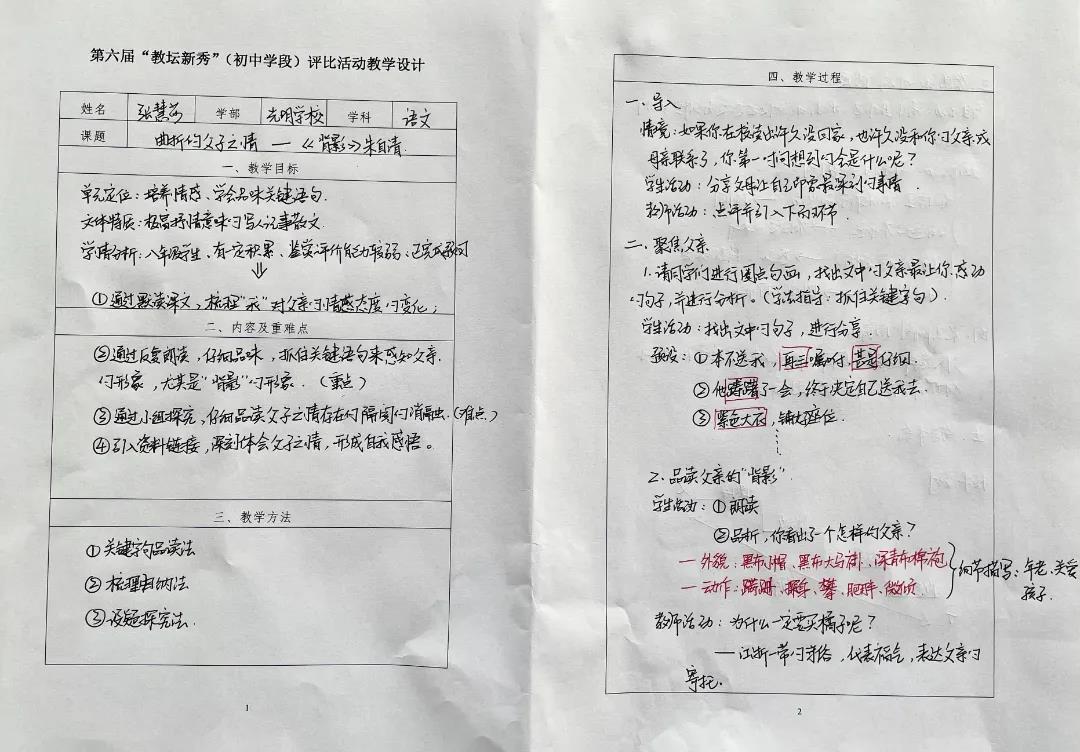 第六届“教坛新秀”（初中学段）评比活动教学设计
姓名 张慧 学部 光明学校 学科 语文
课题 曲折的父子之情 — 《背影》朱自清
一、教学目标
单元定位：培养情感、学会品味关键语句.
文体特质：极具抒情意味的写人记事散文.
学情分析：八年级学生、有一定积累、鉴赏评价能力较弱、已完成预习
⇓
①通过默读课文，梳理“我”对父亲的情感态度的变化；
二、内容及重难点
②通过反复朗读，仔细品味，抓住关键语句来感知父亲
的形象，尤其是“背影”的形象.（重点）
③通过小组探究，仔细品读父子之情存在的隔阂的消融.（难点）
④引入资料链接，深刻体会父子之情，形成自我感悟。
三、教学方法
①关键字句品读法
②梳理归纳法
③设疑探究法.
1
四、教学过程
一、导入
情境：如果你在校读书许久没回家，也许久没和你的父亲或
母亲联系了，你第一时间想到的会是什么呢？
学生活动：分享父母让自己印象最深刻的事情.
教师活动：点评并引入下面环节.
二、聚焦父亲
1.请同学们进行圈点勾画，找出文中的父亲最让你感动
的句子，并进行分析。（学法指导：抓住关键字句）.
学生活动：找出文中的句子，进行分享.
预设：①本不送我，再三嘱咐，甚是仔细.
②他踌躇了一会，终于决定自己送我去.
③紫色大衣，铺好座位.
……
2.品读父亲的“背影”
学生活动：①朗读
②品析，你看出了一个怎样的父亲？
— 外貌：黑布小帽、黑布大马褂、深青布棉袍
— 动作：蹒跚、探身、攀、肥胖、微倾
细节描写：年老、关爱
孩子.
教师活动：为什么一定要买橘子呢？
— 江浙一带的习俗，代表福气，表达父亲的
寄托.
2